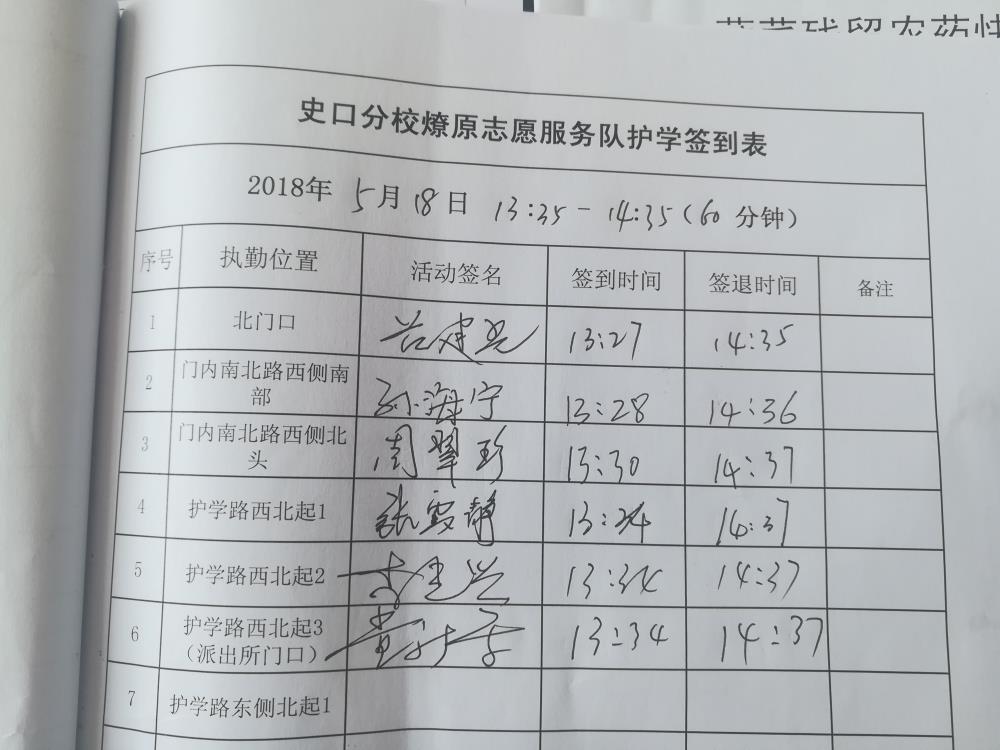 史口分校燎原志愿服务队护学签到表
2018年 5月18日 13:35-14:35(60 分钟)
序号 执勤位置 活动签名 签到时间 签退时间 备注
1 北门口 13:27 14:35
2 门内南北路西侧南
部 孙海宁 13:28 14:36
3 门内南北路西侧北
头 周翠珍 13:30 14:37
4 护学路西北起1 张雯静 13:34 14:37
5 护学路西北起2 13:34 14:37
6 护学路西北起3
(派出所门口) 13:34 14:37
7 护学路东侧北起1